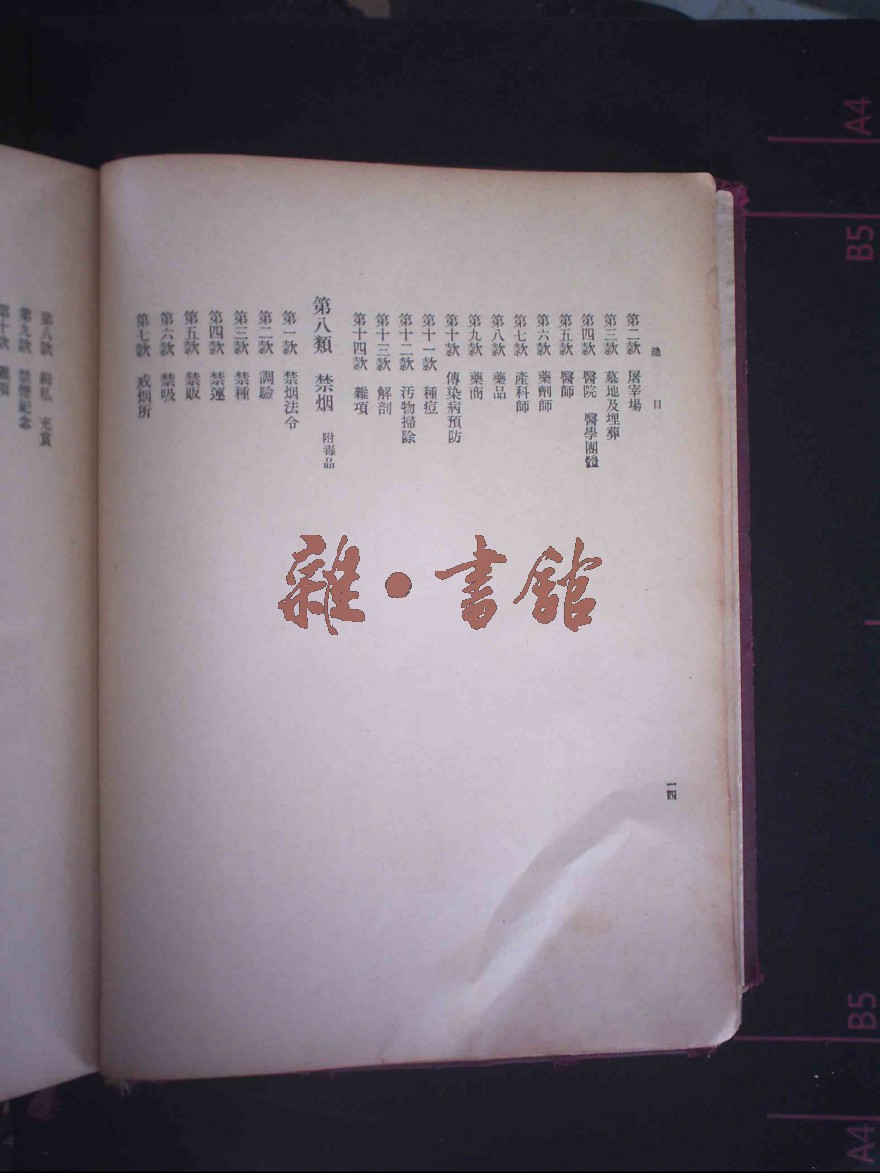 總目
第二款 屠宰場
第三款 墓地及埋葬
第四款 醫院 醫學團體
第五款 醫師
第六款 藥劑師
第七款 產科師
第八款 藥品
第九款 藥商
第十款 傳染病預防
第十一款 種痘
第十二款 汚物掃除
第十三款 解剖
第十四款 雜項
第八類 禁烟 附毒品
第一款 禁烟法令
第二款 調驗
第三款 禁種
第四款 禁運
第五款 禁販
第六款 禁吸
第七款 戒烟所
一四
第八款 緝私 充賞
第九款 禁烟紀念
第十款 雜項
雜·書館
A4
B5
B5
A4